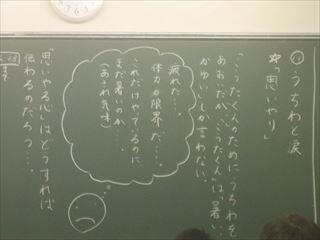 ⑬うちわと涙
☆「思いやり」
「こうたくんのためにうちわを
あおたが、こうたくんは「暑い、
かゆい」しか言わない。
疲れた…。
体力の限界だ…。
これだけやっているのに、
まだ暑いのか…。
(あきれ気味)
「思いやる心」はどうすれば
伝わるのだろう…。